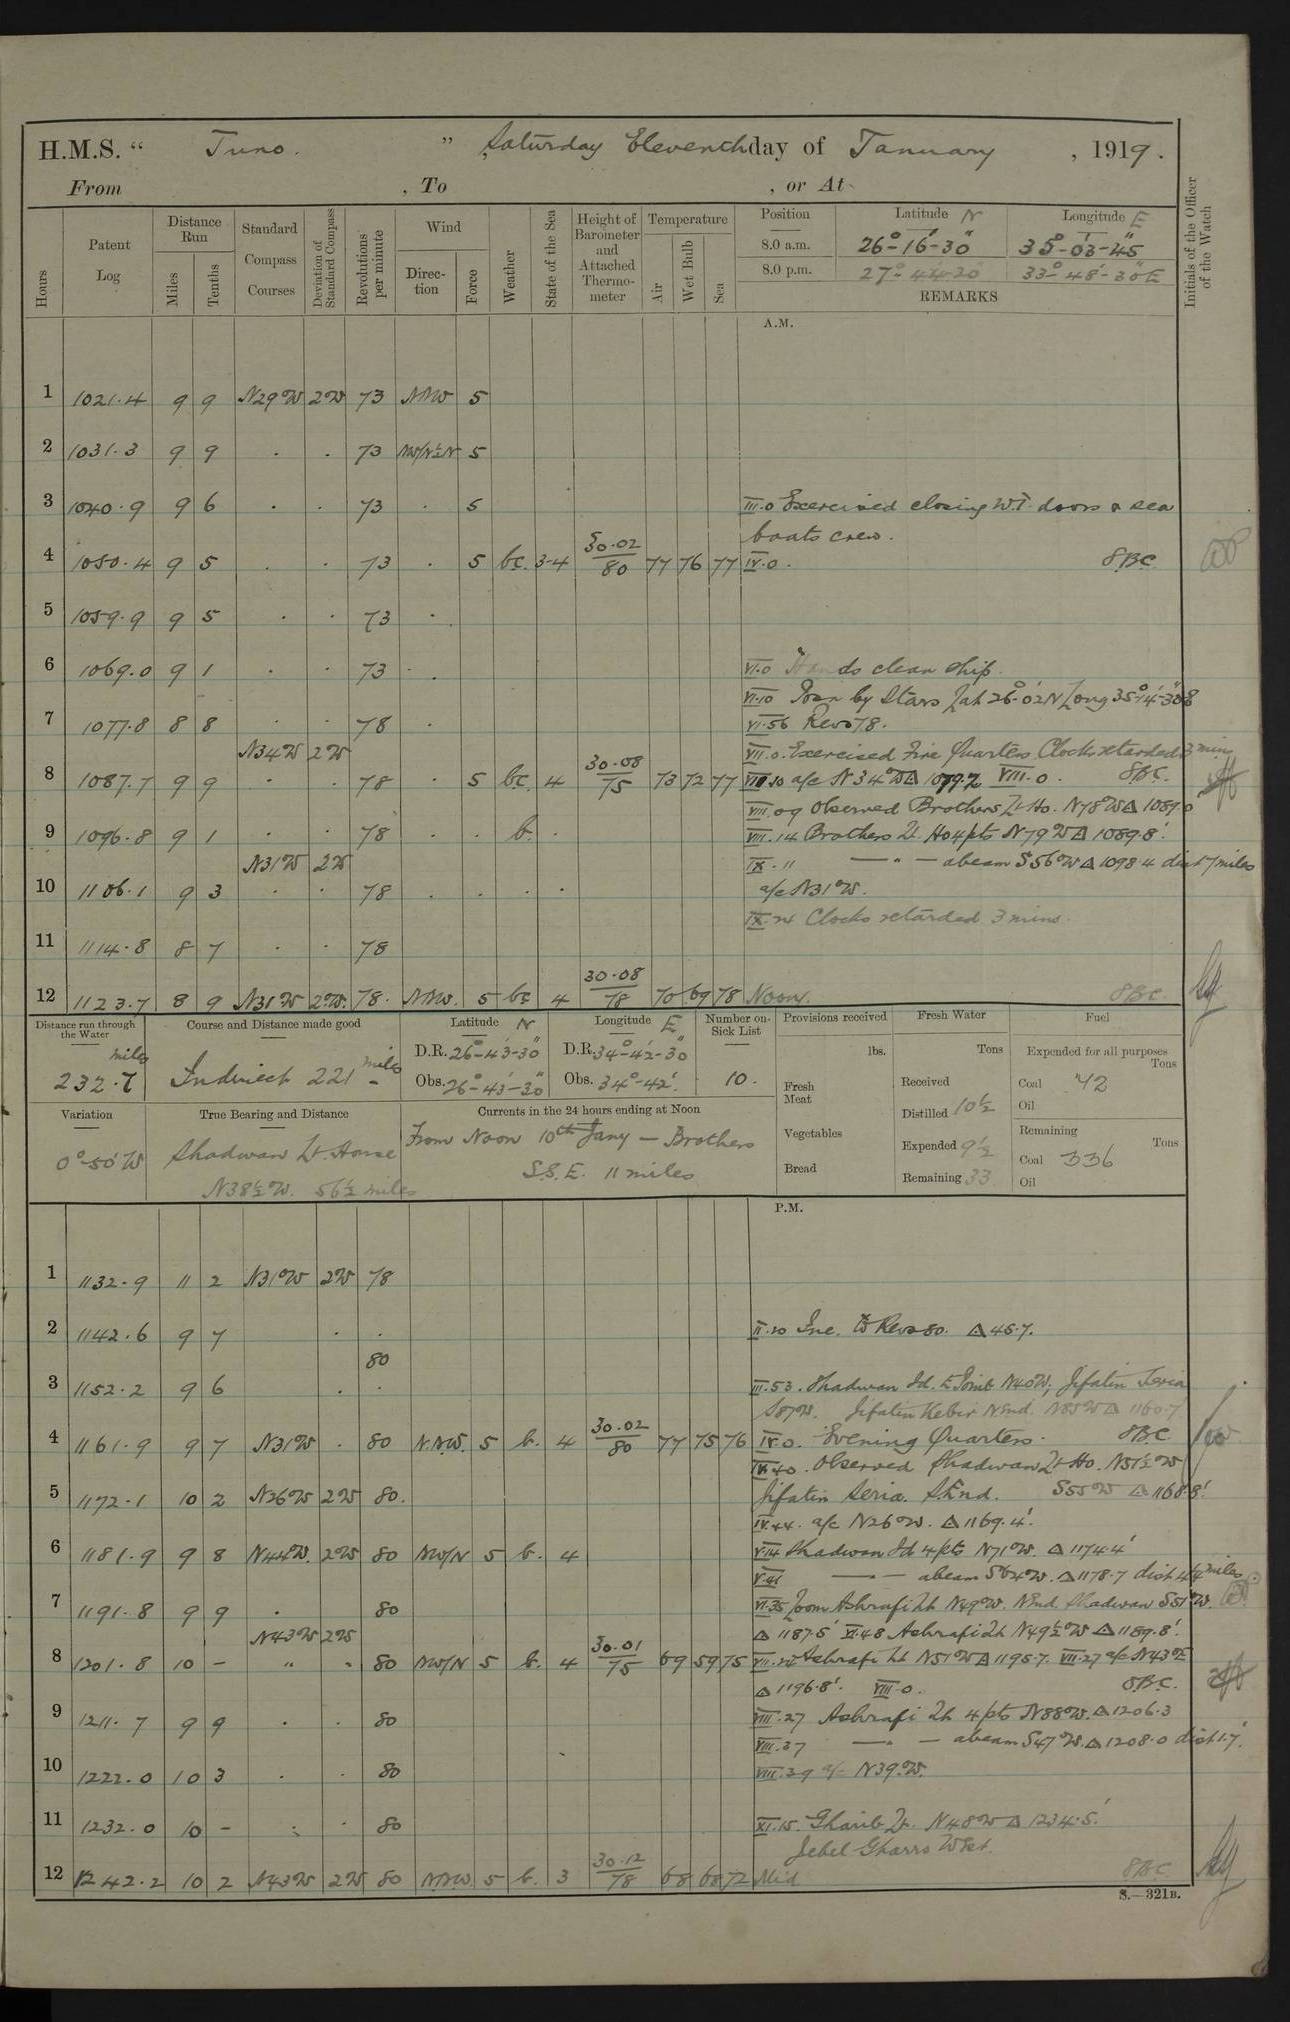 H.M.S. “ Juno. ” Saturday Eleventh day of January , 1919.
From , To , or At
Hours
Patent Log
Distance Run
Miles
Tenths
Standard Compass Courses
Deviation of Standard Compass
Revolutions per minute
Wind
Direction
Force
Weather
State of the Sea
Height of Barometer and Attached Thermometer
Temperature
Air
Wet Bulb
Sea
Position Latitude N Longitude E
8.0 a.m. 26°-16'-30" 35°-03'-45"
8.0 p.m. 27°-44'-20" 33°-48'-30"E
REMARKS
Initials of the Officer of the Watch
A.M.
1 1021.4 9 9 N29W 2W 73 NNW 5
2 1031.3 9 9 . . 73 NW/N½N 5
3 1040.9 9 6 . . 73 . 5 III.0 Exercised closing W.T. doors & sea
boats crew.
4 1050.4 9 5 . . 73 . 5 bc. 3-4 30.02/80 77 76 77 IV.0. 8BC
5 1059.9 9 5 . . 73 .
6 1069.0 9 1 . . 73 . VI.0 Hands clean ship.
VI.10 Posn by Stars Lat 26°-02'N Long 35°-14'-30"E
7 1077.8 8 8 . . 78 . VI.56 Revs 78.
N34W 2W VII.0. Exercised Fire Quarters Clocks retarded 3 mins
8 1087.7 9 9 . . 78 . 5 bc. 4 30.08/75 73 72 77 VII.10 a/c N34W Δ 1079.7 VIII.0. 8BC.
VIII.09 Observed Brothers Lt Ho. N78W Δ 1089.0
9 1096.8 9 1 . . 78 . . b. . VIII.14 Brothers Lt. Ho 4pts N79W Δ 1089.8'.
N31W 2W IX.11 — " — abeam S56W Δ 1098.4 dist 7 miles
10 1106.1 9 3 . . 78 . . . . a/c N31W.
IX.24 Clocks retarded 3 mins.
11 1114.8 8 7 . . 78
12 1123.7 8 9 N31W 2W. 78. NNW. 5 bc 4 30.08/78 70 69 78 Noon. 8BC.
Distance run through the Water
232.7 miles
Course and Distance made good
Indirect 221 miles
Latitude N
D.R. 26°-43'-30"
Obs. 26°-43'-30"
Longitude E
D.R. 34°-42'-30"
Obs. 34°-42'.
Number on Sick List
10.
Provisions received
lbs.
Fresh Meat
Vegetables
Bread
Fresh Water
Tons
Received
Distilled 10½
Expended 9½
Remaining 33
Fuel
Expended for all purposes
Tons
Coal 42
Oil
Remaining
Tons
Coal 336
Oil
Variation
0°-50'W
True Bearing and Distance
Shadwan Lt. House
N38½W. 56½ miles
Currents in the 24 hours ending at Noon
From Noon 10th Jany — Brothers
S.S.E. 11 miles
P.M.
1 1132.9 11 2 N31W 2W 78
2 1142.6 9 7 . . II.20 Inc. to Revs 80. Δ 45.7.
80
3 1152.2 9 6 . . III.53. Shadwan Id. E Point N40W, Jifatin Seria
S87W. Jifatin Kebir N End N85W Δ 1160.7
4 1161.9 9 7 N31W . 80 N.NW. 5 b. 4 30.02/80 77 75 76 IV.0. Evening Quarters. 8BC
IV.40. Observed Shadwan Lt Ho. N51½W
5 1172.1 10 2 N26W 2W 80. Jifatin Seria. S.End. S55W Δ 1168.8'.
IV.44. a/c N26W. Δ 1169.4'.
6 1181.9 9 8 N44W. 2W 80 NW/N 5 b. 4 V.14 Shadwan Id 4pts N71W. Δ 1174.4'
V.41 — " — abeam S64W. Δ 1178.7 dist 4.4 miles.
7 1191.8 9 9 . 80 VI.35 Zoom Ashrafi Lt N49W. N End Shadwan S51W.
N43W 2W Δ 1187.5' VI.48 Ashrafi Lt N49½W Δ 1189.8'.
8 1201.8 10 – " . 80 NW/N 5 b. 4 30.01/75 69 59 75 VII.24 Ashrafi Lt N51W Δ 1195.7. VII.27 a/c N43W
Δ 1196.8'. VIII.0. 8BC.
9 1211.7 9 9 . . 80 VIII.27 Ashrafi Lt 4pts N88W. Δ 1206.3
VIII.37 — " — abeam S47W. Δ 1208.0 dist 1.7'.
10 1222.0 10 3 . . 80 VIII.39 a/c N39W.
11 1232.0 10 – . . 80 XI.15. Gharib Lt. N48W Δ 1234.5.'
Jebel Gharro West.
12 1242.2 10 2 N43W 2W 80 NNW. 5 b. 3 30.12/78 68 68 72 Mid. 8BC
S.—321B.